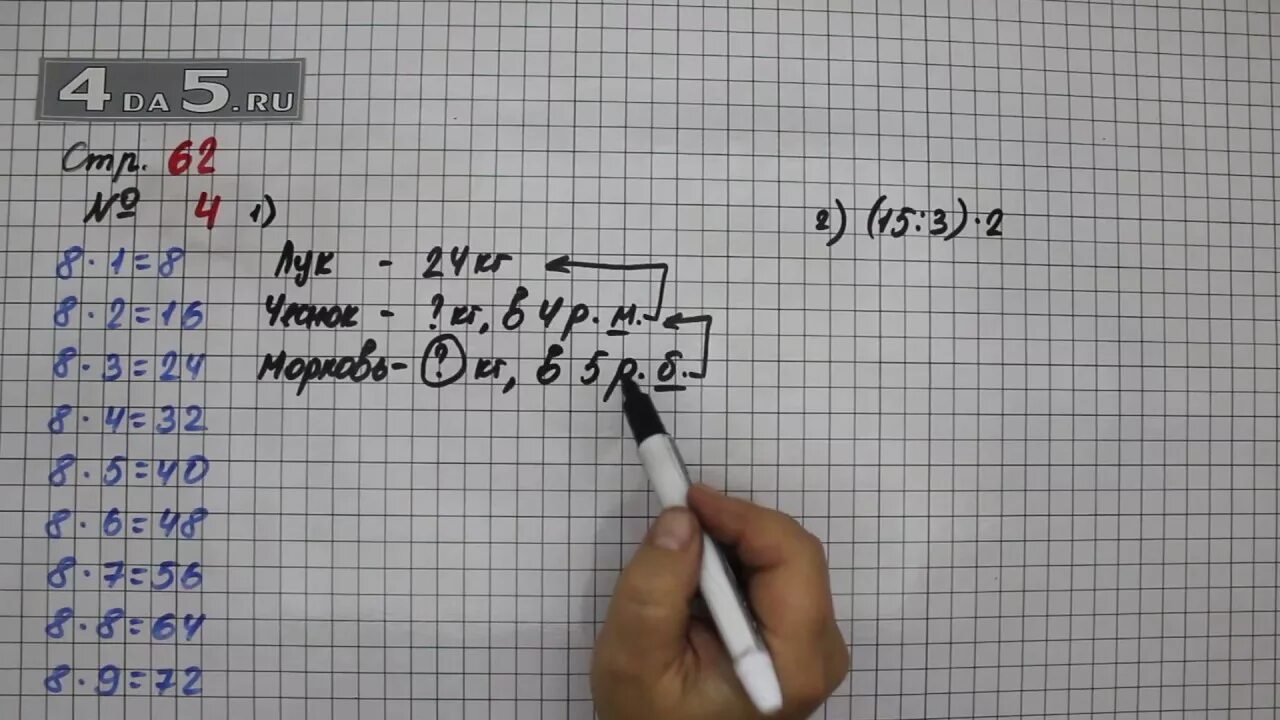 4 DA 5.RU
Стр. 62
№ 4 1)
2) (15:3)·2
8·1=8
8·2=16
8·3=24
8·4=32
8·5=40
8·6=48
8·7=56
8·8=64
8·9=72
Лук - 24кг
Чеснок - ? кг, в 4 р. м.
Морковь - ? кг, в 5 р. б.